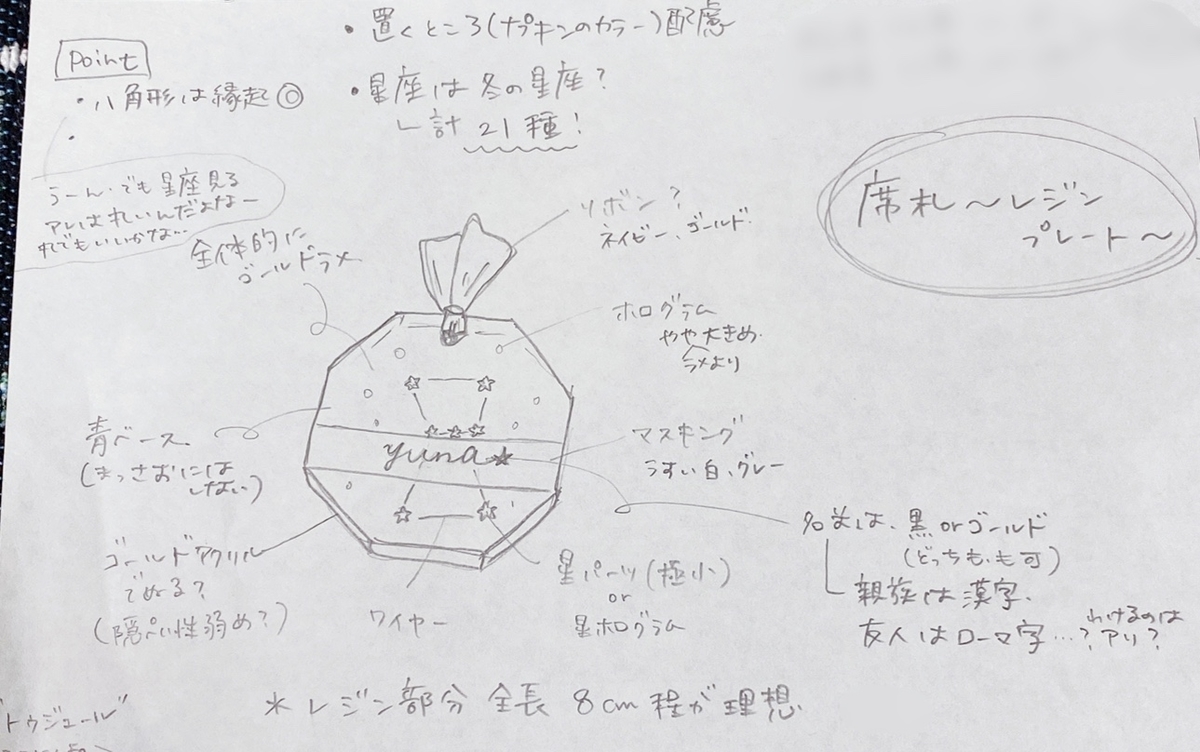 Point
・八角形は縁起◎
・
うーん・でも星座見る
アレはれいんだよなー
れでもいいかな…
・置くところ(ナプキンのカラー)配慮
・星座は冬の星座?
計 21種!
席札〜レジン
プレート〜
リボン?
ネイビー、ゴールド
全体的に
ゴールドラメ
ホログラム
やや大きめ
ラメより
青ベース
(まっさおには
しない)
マスキング
うすい白、グレー
yuna
名前は、黒orゴールド
(どっちも、も可)
親族は漢字、
友人はローマ字…?
わけるのは
アリ?
ゴールドアクリル
でぬる?
(隠ぺい性弱め?)
ワイヤー
星パーツ(極小)
or
星ホログラム
＊レジン部分 全長 8cm 程が理想
"トゥジュール"